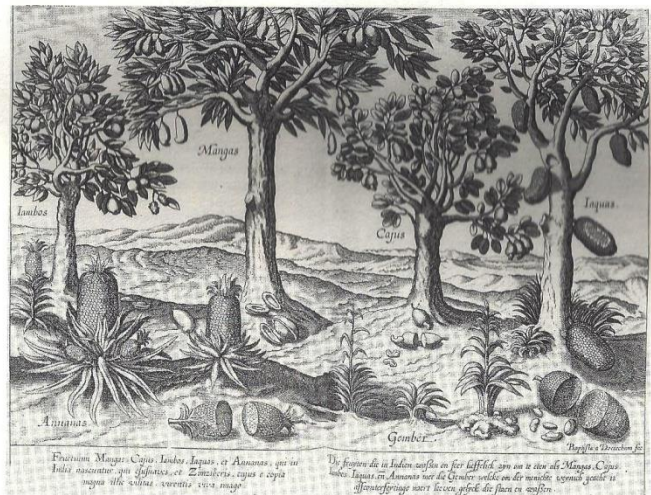 Iambos
Mangas
Cajus
Iaquas.
Annanas
Gember.
Baptista a Doetechum fec
Fructuum Mangas, Cajus, Iambos, Iaquas, et Annanas, qui in
Indiis nascuntur, qui esu suaves, et Zinziberis, cujus e copia
magna illic vilitas virentis viva imago.
Die fruyten die in Indien wassen en seer lieffelick zyn om te eten als Mangas, Cajus
Iambos, Iaquas, en Annanas met die Gember welcke om der menichte weynich geacht is